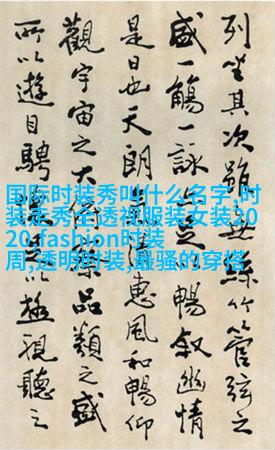 列坐其次雖無絲竹管弦之
盛一觴一詠暢敘幽情
是日也天朗惠風和暢仰
觀宇宙之大品類之盛
所以遊目騁以極視聽之
国际时装秀叫什么名字,时
装走秀全透视服装女装20
20,fashion时装
周,透明时装,最骚的穿搭